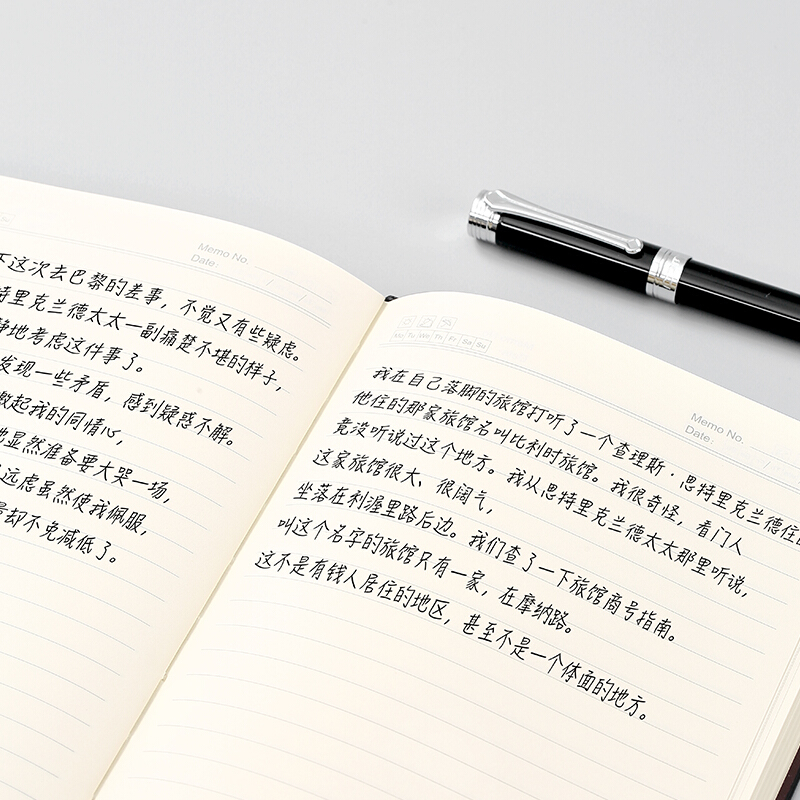 Memo No.
Date:
下这次去巴黎的差事，不觉又有些疑虑。
特里克兰德太太一副痛楚不堪的样子，
静地考虑这件事了。
发现一些矛盾，感到疑惑不解。
激起我的同情心，
她显然准备要大哭一场，
远虑虽然使我佩服，
却不免减低了。
Mo Tu We Th Fr Sa Su
Memo No.
Date:
我在自己落脚的旅馆打听了一个查理斯·思特里克兰德住的
他住的那家旅馆名叫比利时旅馆。我很奇怪，看门人
竟没听说过这个地方。我从思特里克兰德太太那里听说，
这家旅馆很大、很阔气，
坐落在利渥里路后边。我们查了一下旅馆商号指南。
叫这个名字的旅馆只有一家，在摩纳路。
这不是有钱人居住的地区，甚至不是一个体面的地方。